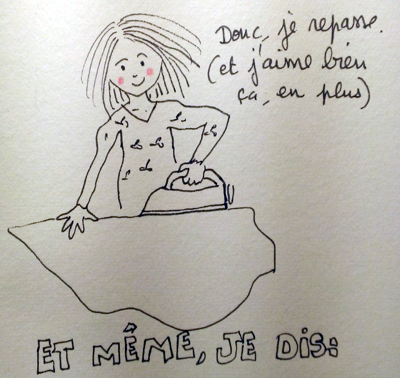 Donc, je repasse.
(et j'aime bien
ça, en plus)
ET MÊME, JE DIS: